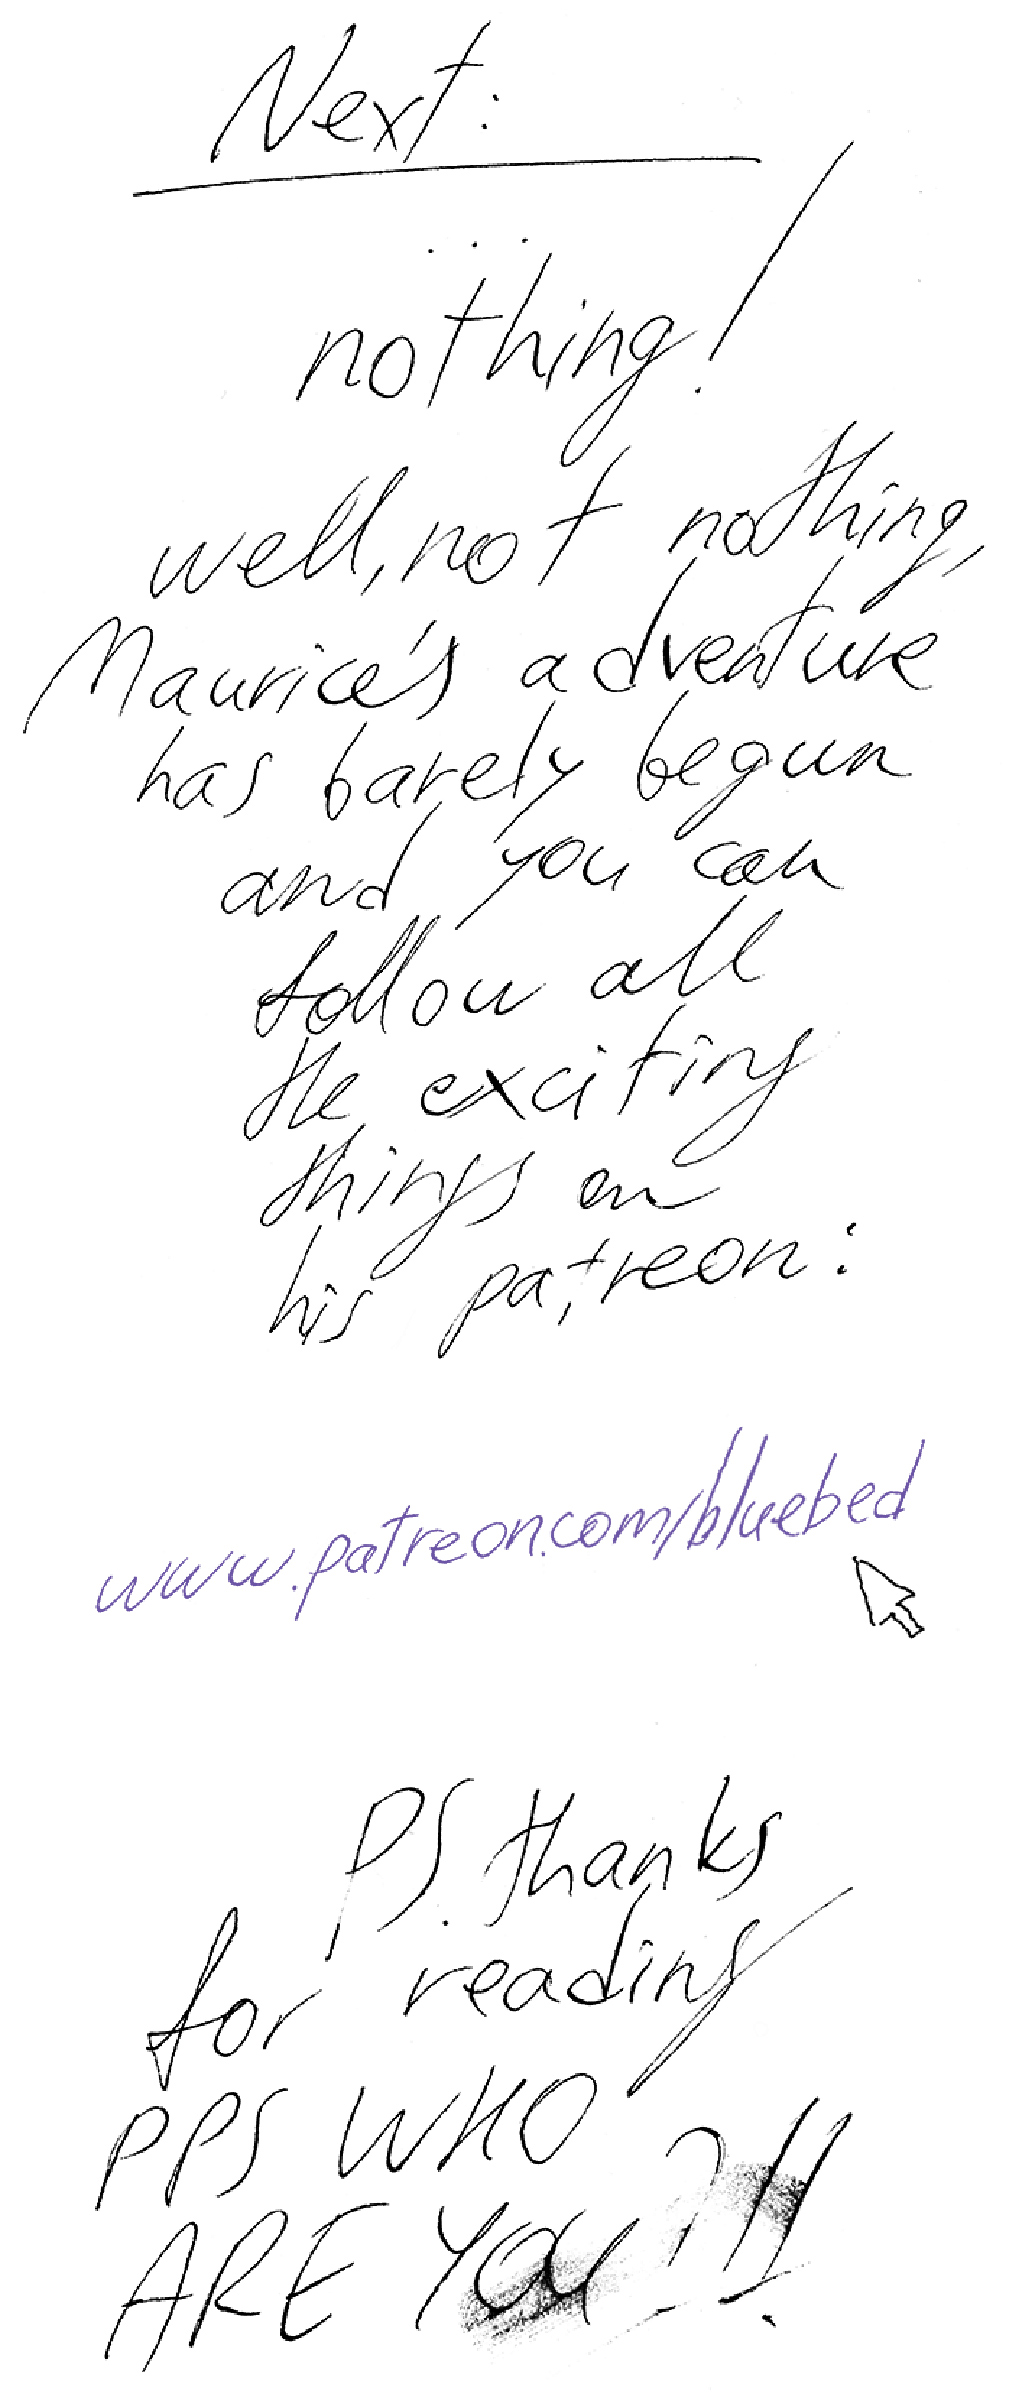 Next:
...
nothing!
well, not nothing,
Maurice's adventure
has barely begun
and you can
follow all
the exciting
things on
his patreon:
www.patreon.com/bluebed
PS. thanks
for reading
PPS WHO
ARE YOU?!!